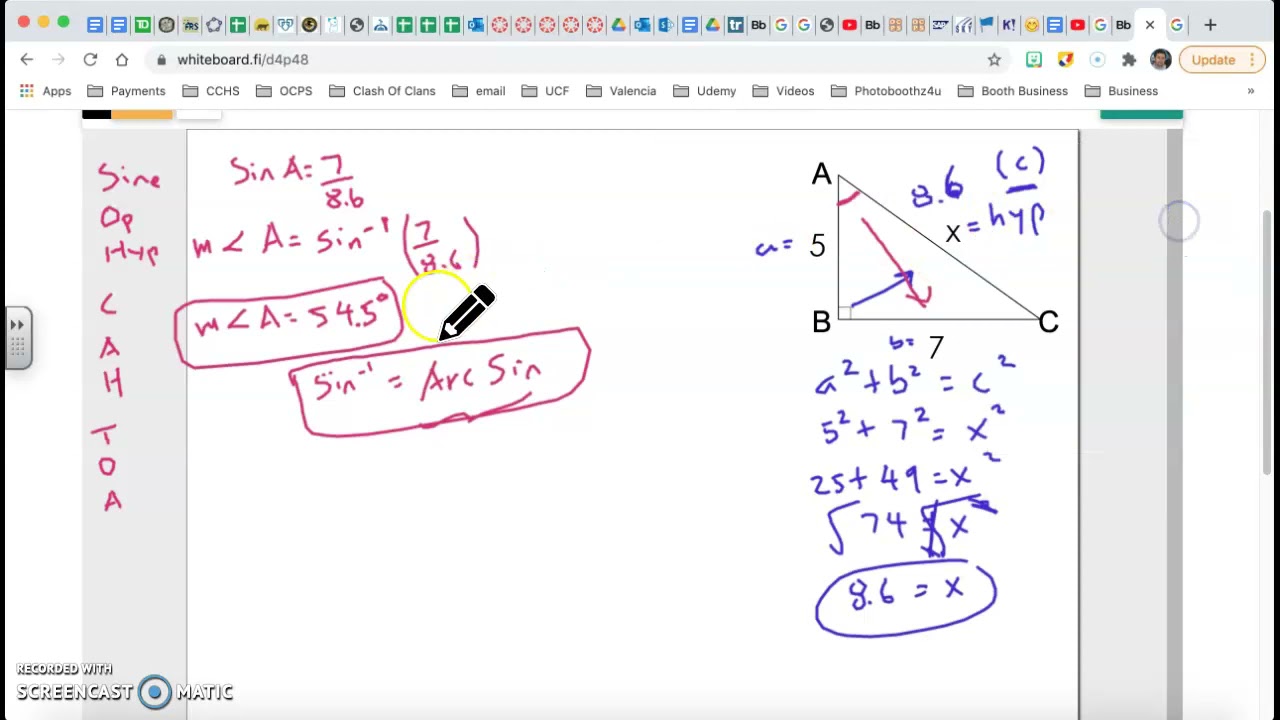 whiteboard.fi/d4p48
Update
Apps Payments CCHS OCPS Clash Of Clans email UCF Valencia Udemy Videos Photoboothz4u Booth Business Business »
Sine
Op
Hyp
C
A
H
T
O
A
Sin A = 7/8.6
m < A = sin⁻¹ (7/8.6)
m < A = 54.5°
Sin⁻¹ = Arc Sin
A
8.6 (c)
x = hyp
a = 5
B
C
b = 7
a² + b² = c²
5² + 7² = x²
25 + 49 = x²
√74 = √x²
8.6 = x
RECORDED WITH
SCREENCAST MATIC